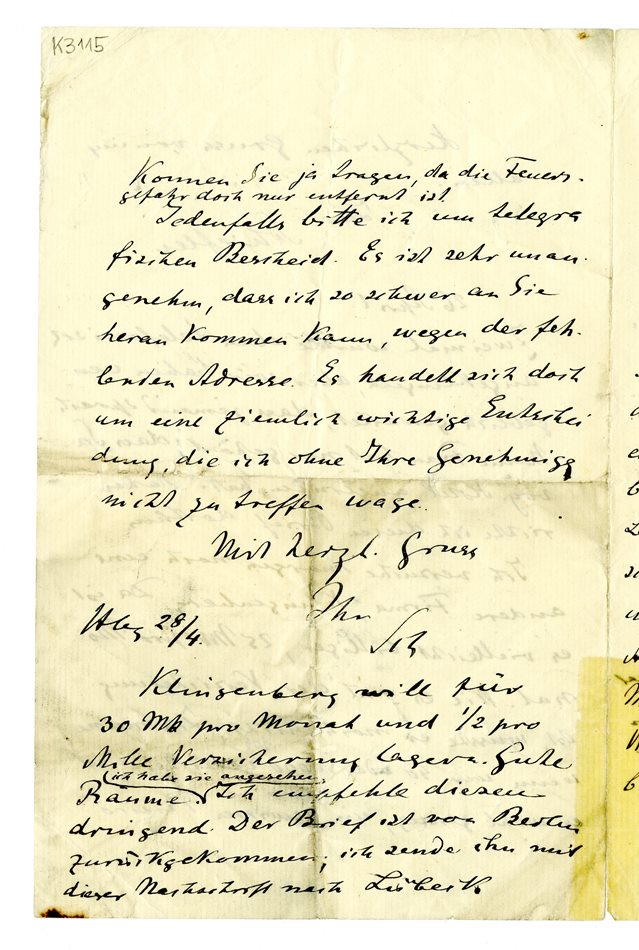 K3115
können Sie ja tragen, da die Feuers-
gefahr doch nur entfernt ist.
Jedenfalls bitte ich um telegra
fischen Bescheid. Es ist sehr unan-
genehm, dass ich so schwer an Sie
heran kommen kann, wegen der feh-
lenden Adresse. Es handelt sich doch
um eine ziemlich wichtige Entschei
dung, die ich ohne Ihre Genehmigg
nicht zu treffen wage.
Mit herzl. Gruss
Ihr
Sch
Hbg 28/4.
Klingenberg will für
30 Mk pro Monat und 1/2 pro
Mille Versicherung lagern. Gute
(ich habe sie angesehen)
Räume. Ich empfehle diesen
dringend. Der Brief ist von Berlin
zurückgekommen; ich sende ihn mit
dieser Nachschrift nach Lübeck